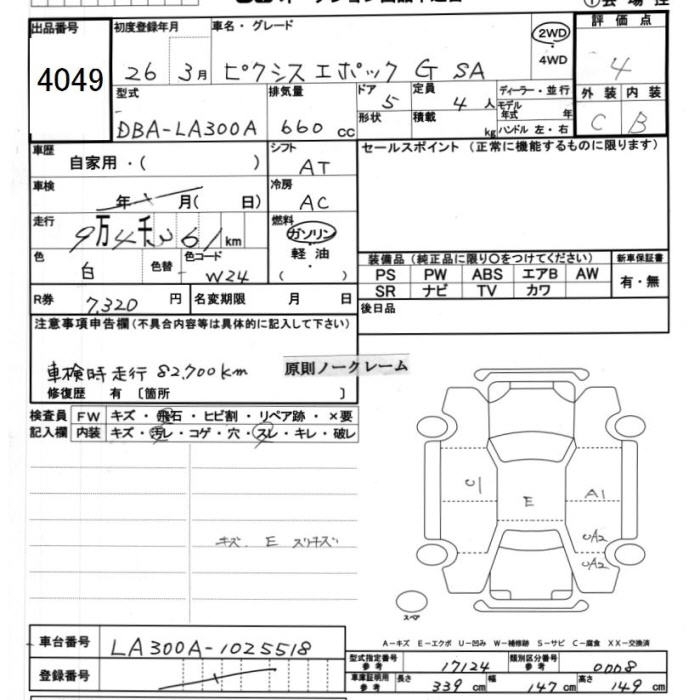 出品番号
4049
初度登録年月
26 3月
車名・グレード
ピクシスエポック G SA
2WD
4WD
評価点
4
外装 内装
C B
型式
DBA-LA300A
排気量
660 cc
ドア 5
形状
定員 4 人
積載 kg
ディーラー・並行
モデル年式 年
ハンドル 左・右
車歴
自家用・( )
シフト
AT
セールスポイント (正常に機能するものに限ります)
車検
年 月( 日)
冷房
AC
走行
9万4千361km
燃料
ガソリン
軽油
( )
色
白
色替
色コード
W24
装備品 (純正品に限り〇をつけてください)
PS PW ABS エアB AW
SR ナビ TV カワ
新車保証書
有・無
R券 7,320 円
名変期限 月 日
後日品
注意事項申告欄(不具合内容等は具体的に記入して下さい)
車検時走行 82,700km
原則ノークレーム
修復歴 有 〔箇所 〕
検査員記入欄
FW キズ・飛石・ヒビ割・リペア跡・×要
内装 キズ・汚レ・コゲ・穴・スレ・キレ・破レ
キズ. E スリキズ
E
A1
UA2
UA2
スペア
A-キズ E-エクボ U-凹み W-補修跡 S-サビ C-腐食 XX-交換済
車台番号 LA300A-1025518
登録番号
型式指定番号参考 17124
類別区分番号参考 0008
車庫証明用参考 長さ 339 cm 幅 147 cm 高さ 149 cm